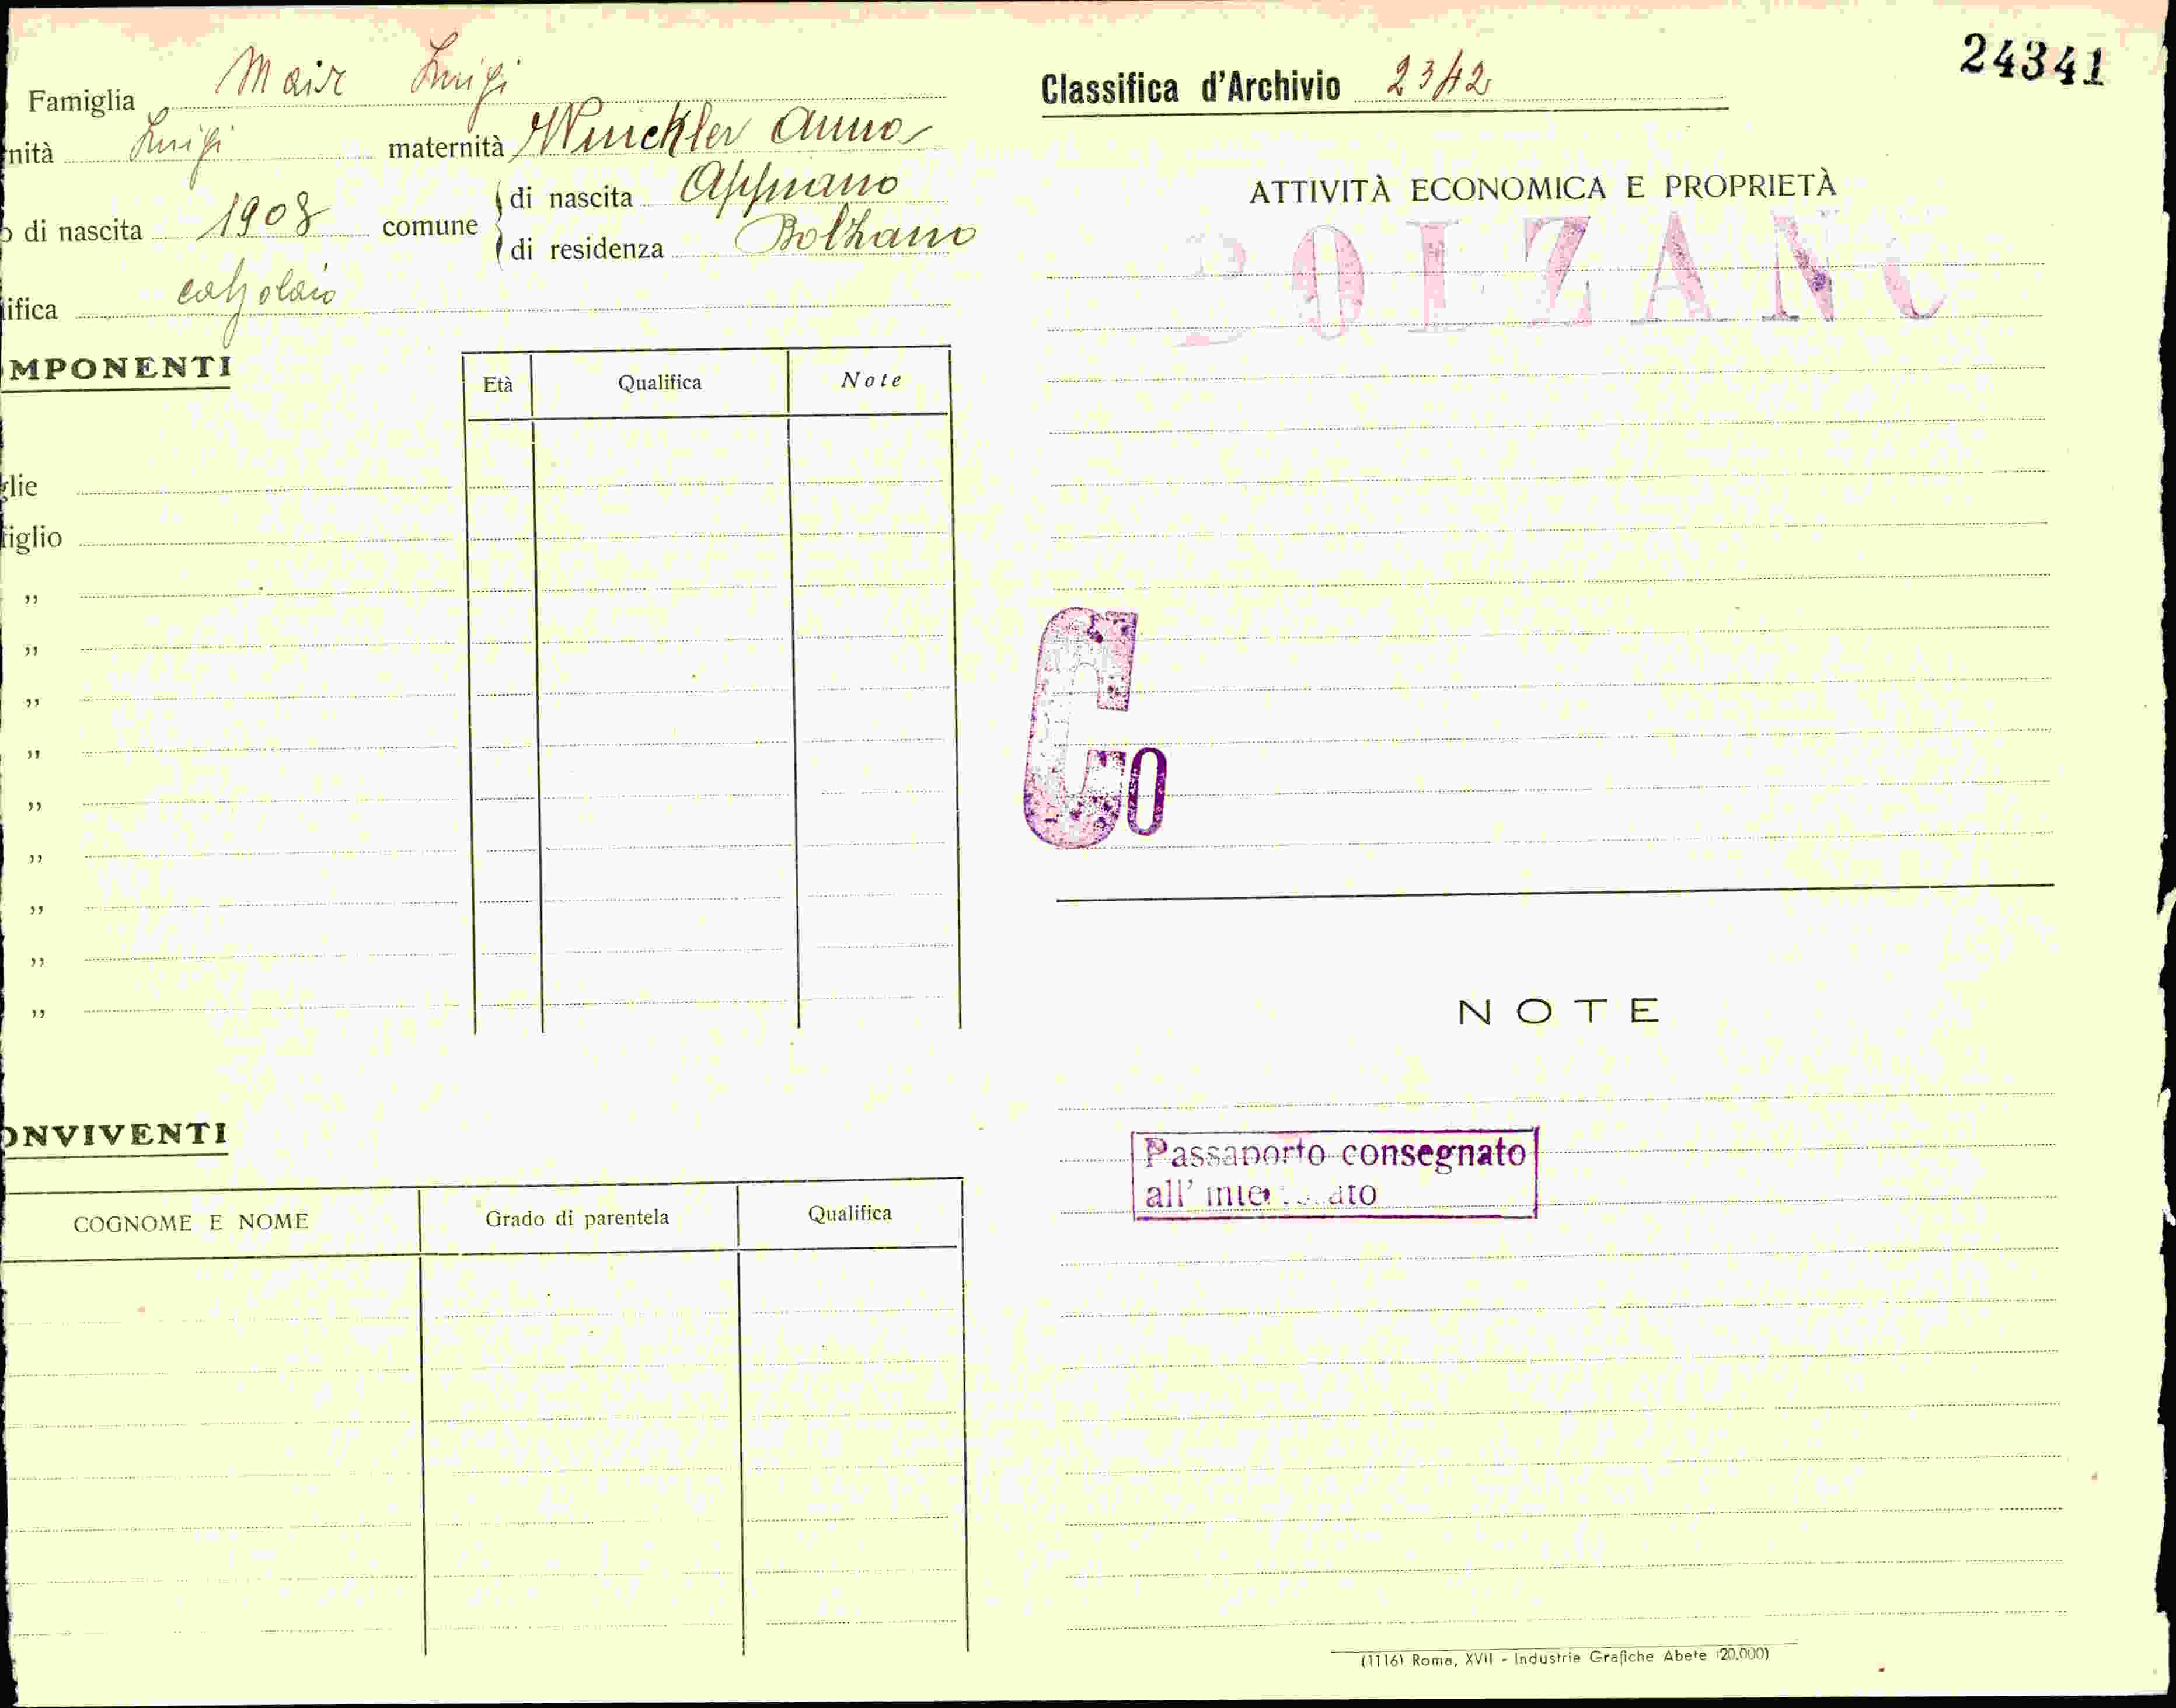 Famiglia Mair Luigi
nità Luigi maternità Winckler Anna
di nascita 1908 comune di nascita Appiano
di residenza Bolzano
ifica calzolaio
MPONENTI
Età Qualifica Note
glie
figlio
„
„
„
„
„
„
„
„
„
ONVIVENTI
COGNOME E NOME Grado di parentela Qualifica
Classifica d'Archivio 2342
24341
ATTIVITÀ ECONOMICA E PROPRIETÀ
BOLZANO
C
0
NOTE
Passaporto consegnato
all' interessato
(1116) Roma, XVII - Industrie Grafiche Abete (20.000)